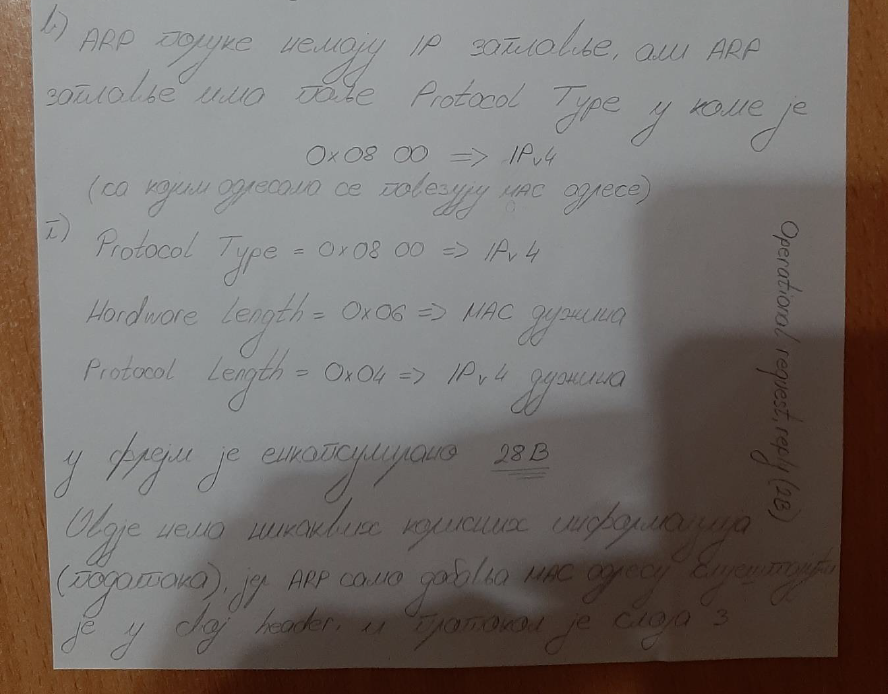 в) ARP поруке немају IP заглавље, али ARP
заглавље има поље Protocol Type у коме је
0x08 00 => IPv4
(са којим адресама се повезују MAC адресе)
г) Protocol Type = 0x08 00 => IPv4
Hardware Length = 0x06 => MAC дужина
Protocol Length = 0x04 => IPv4 дужина
у фрејм је енкапсулирано 28B
Овдје нема никаквих корисних информација
(података), јер ARP само добавља MAC адресу
је у свој header, и протокол је слоја 3
Operational request, reply (2B)